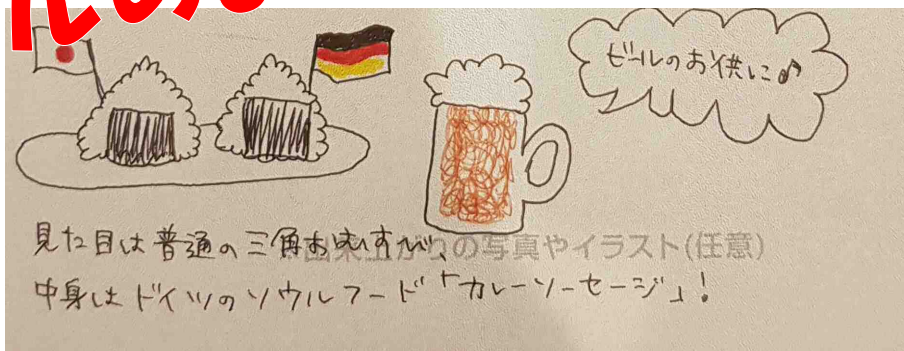 ビールのお供に♪
見た目は普通の三角おむすび、
出来上がりの写真やイラスト(任意)
中身はドイツのソウルフード「カレーソーセージ」!